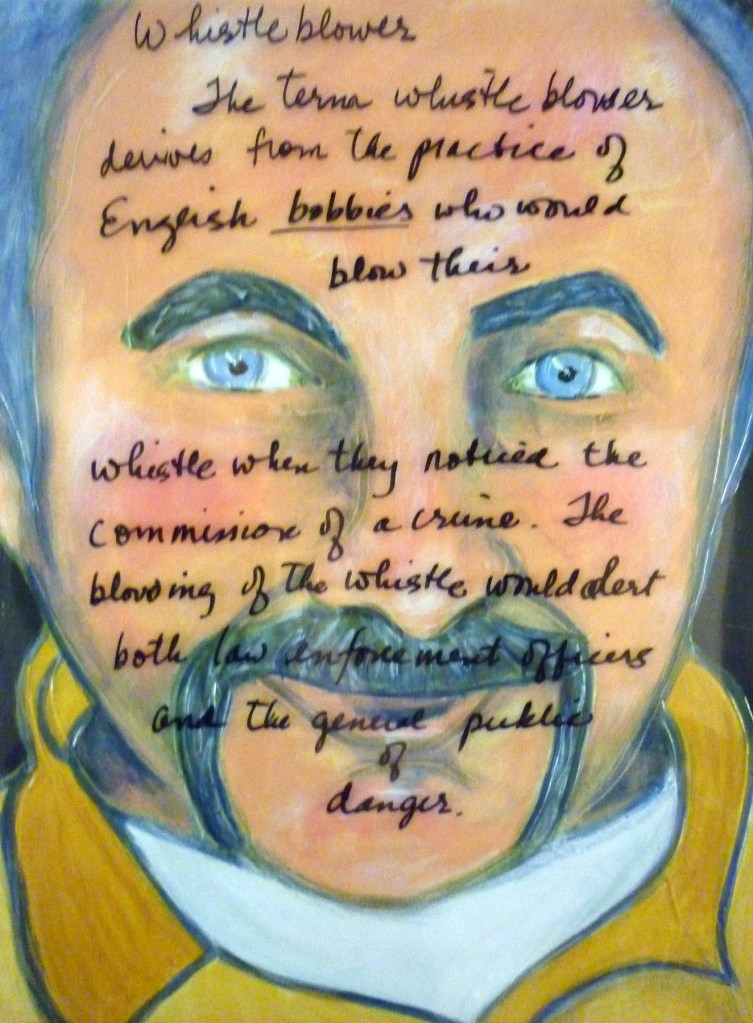 Whistleblower
The term whistle blower
derives from the practice of
English bobbies who would
blow their
whistle when they noticed the
commission of a crime. The
blowing of the whistle would alert
both law enforcement officers
and the general public
of
danger.